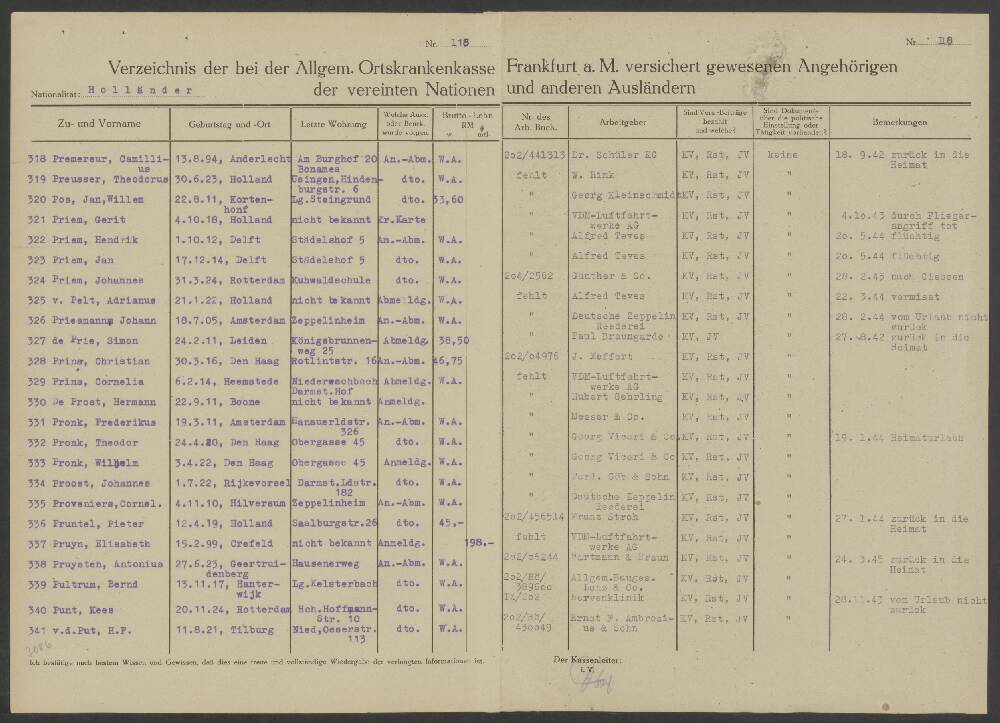 Nr. 118
Nr. 118
Verzeichnis der bei der Allgem. Ortskrankenkasse Frankfurt a. M. versichert gewesenen Angehörigen
Nationalität: Holländer der vereinten Nationen und anderen Ausländern
Zu- und Vorname Geburtstag und -Ort Letzte Wohnung Welche Ausk. oder Beurk. wurde vorgen. Brutto-Lohn RM w. mtl. Nr. des Arb. Buch. Arbeitgeber Sind Vers.-Beiträge bezahlt und welche? Sind Dokumente über die politische Einstellung oder Tätigkeit vorhanden? Bemerkungen
318 Premereur, Camilli- 13.8.94, Anderlecht Am Burghof 20 An.-Abm. W.A. 2o2/441313 Dr. Schüler KG KV, Rst, JV keine 18. 9.42 zurück in die
us Bonames Heimat
319 Preusser, Theodorus 30.6.23, Holland Usingen,Hinden- dto. W.A. fehlt W. Rink KV, Rst, JV "
burgstr. 6
320 Pos, Jan,Willem 22.8.11, Korten- Lg.Steingrund dto. 53,60 " Georg Kleinschmidt KV, Rst, JV "
honf
321 Priem, Gerit 4.10.18, Holland nicht bekannt Kr.Karte " VDM-Luftfahrt- KV, Rst, JV " 4.1o.43 durch Flieger-
werke AG angriff tot
322 Priem, Hendrik 1.10.12, Delft Städelshof 5 An.-Abm. W.A. " Alfred Teves KV, Rst, JV " 2o. 5.44 flüchtig
323 Priem, Jan 17.12.14, Delft Städelshof 5 dto. W.A. " Alfred Teves KV, Rst, JV " 2o. 5.44 flüchtig
324 Priem, Johannes 31.3.24, Rotterdam Kuhwaldschule dto. W.A. 2o4/2562 Günther & Co. KV, Rst, JV " 28. 2.45 nach Giessen
325 v. Pelt, Adrianus 21.1.22, Holland nicht bekannt Abmeldg. W.A. fehlt Alfred Teves KV, Rst, JV " 22. 3.44 vermisst
326 Priesmanns Johann 18.7.05, Amsterdam Zeppelinheim An.-Abm. W.A. " Deutsche Zeppelin KV, Rst, JV " 28. 2.44 vom Urlaub nicht
Reederei zurück
327 de Prie, Simon 24.2.11, Leiden Königsbrunnen- Abmeldg. 38,50 " Paul Braungarde KV, JV " 27. 8.42 zurück in die
weg 25 Heimat
328 Prins, Christian 30.3.16, Den Haag Rotlintstr. 16 An.-Abm. 46,75 2o2/o4976 J. Kaffert KV, Rst, JV "
329 Prins, Cornelia 6.2.14, Heemstede Niederwschbach Abmeldg. W.A. fehlt VDM-Luftfahrt- KV, Rst, JV "
Darmst.Hof werke AG
330 De Prost, Hermann 22.9.11, Boone nicht bekannt Anmeldg. " Hubert Gehrling KV, Rst, JV "
331 Pronk, Frederikus 19.3.11, Amsterdam Hanauerldstr. An.-Abm. W.A. " Messer & Co. KV, Rst, JV "
326
332 Pronk, Theodor 24.4.20, Den Haag Obergasse 45 dto. W.A. " Georg Vicari & Co KV, Rst, JV " 19. 1.44 Heimaturlaub
333 Pronk, Wilhelm 3.4.22, Den Haag Obergasse 45 Anmeldg. W.A. " Georg Vicari & Co KV, Rst, JV "
334 Proost, Johannes 1.7.22, Rijkevorsel Darmst.Ldstr. dto. W.A. " Ferd. Göb & Sohn KV, Rst, JV "
182
335 Proveniers,Cornel. 4.11.10, Hilversum Zeppelinheim An.-Abm. W.A. " Deutsche Zeppelin KV, Rst, JV "
Reederei
336 Pruntel, Pieter 12.4.19, Holland Saalburgstr.26 dto. 45,- 2o2/456514 Franz Stroh KV, Rst, JV " 27. 1.44 zurück in die
Heimat
337 Pruyn, Elisabeth 15.2.99, Crefeld nicht bekannt Anmeldg. 198.- fehlt VDM-Luftfahrt- KV, Rst, JV "
werke AG
338 Pruysten, Antonius 27.6.23, Geertrui- Hausenerweg An.-Abm. W.A. 2o2/o5244 Hartmann & Braun KV, Rst, JV " 24. 3.45 zurück in die
denberg Heimat
339 Pultrum, Bernd 13.11.17, Hanter- Lg.Kelsterbach dto. W.A. 2o2/HE/ Allgem.Bauges. KV, Rst, JV "
wijk 3896oo Lenz & Co.
340 Punt, Kees 20.11.24, Rotterdam Hch.Hoffmann- dto. W.A. IX/2o2 Nervenklinik KV, Rst, JV " 28.11.43 vom Urlaub nicht
Str. 10 zurück
341 v.d.Put, H.F. 11.8.21, Tilburg Nied,Oeserstr. dto. W.A. 2o2/HE/ Ernst F. Ambrosi- KV, Rst, JV "
113 430o49 us & Sohn
2086
Ich bestätige nach bestem Wissen und Gewissen, daß dies eine treue und vollständige Wiedergabe der verlangten Informationen ist.
Der Kassenleiter:
i.V.